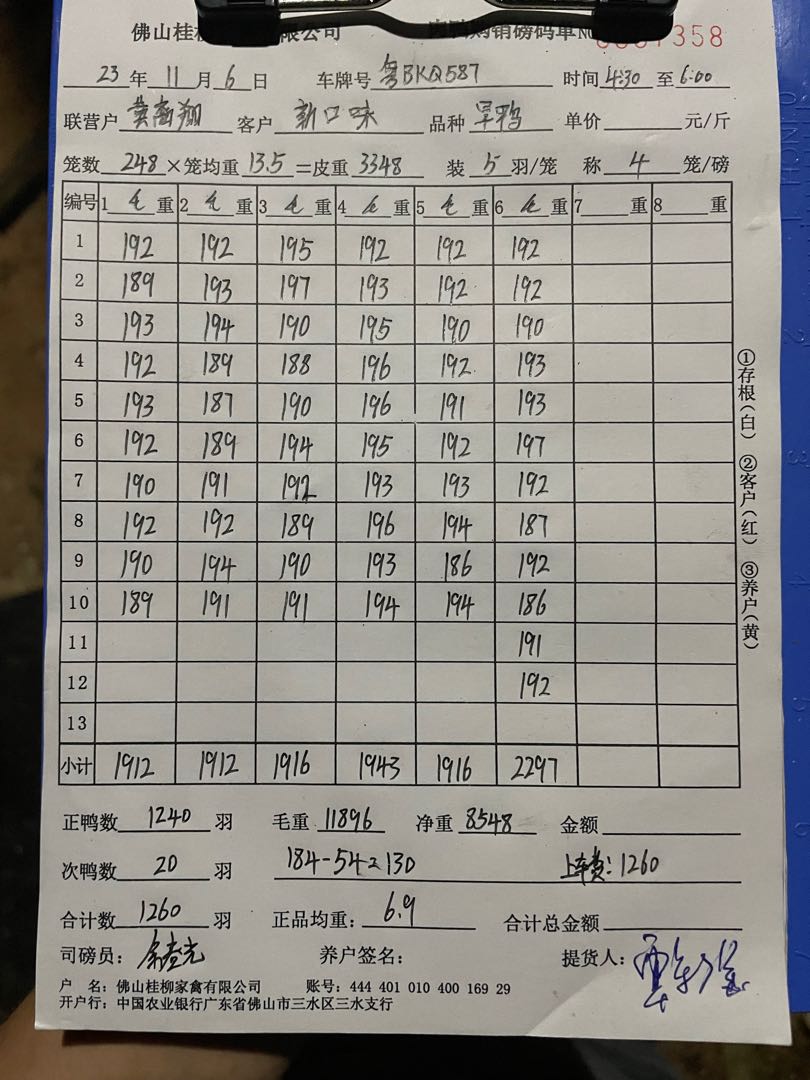 佛山桂柳 限公司 购销磅码单NO 358
23 年 11 月 6 日 车牌号 粤BKQ587 时间 4:30 至 6:00
联营户 黄 翔 客户 新口味 品种 旱鸭 单价 元/斤
笼数 248 ×笼均重 13.5 =皮重 3348 装 5 羽/笼 称 4 笼/磅
编号 1 毛 重 2 毛 重 3 毛 重 4 毛 重 5 毛 重 6 毛 重 7 重 8 重
1 192 192 195 192 192 192
2 189 193 197 193 192 192
3 193 194 190 195 190 190
4 192 189 188 196 192 193
5 193 187 190 196 191 193
6 192 189 194 195 192 197
7 190 191 192 193 193 192
8 192 192 189 196 194 187
9 190 194 190 193 186 192
10 189 191 191 194 194 186
11 191
12 192
13
小计 1912 1912 1916 1943 1916 2297
正鸭数 1240 羽 毛重 11896 净重 8548 金额
次鸭数 20 羽 184-54=130 上车费:1260
合计数 1260 羽 正品均重: 6.9 合计总金额
司磅员: 养户签名: 提货人:
户 名: 佛山桂柳家禽有限公司 账号: 444 401 010 400 169 29
开户行: 中国农业银行广东省佛山市三水区三水支行
①存根(白) ②客户(红) ③养户(黄)